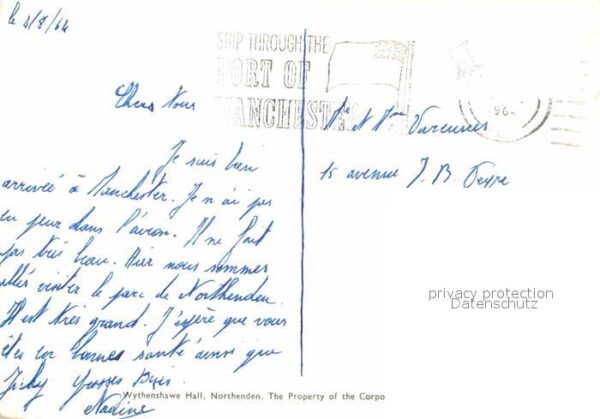 le 4/8/64
SHIP THROUGH THE
PORT OF
MANCHESTER
96
Chers Vous
Je suis bien
arrivée à Manchester. Je n'ai pas
eu peur dans l'avion. Il ne fait
pas très beau. Hier nous sommes
allés visiter le parc de Northenden.
Il est très grand. J'espère que vous
êtes en bonnes santé ainsi que
Grosses Bises
Nadine
Mr et Mme
15 avenue J. B.
privacy protection
Datenschutz
Wythenshawe Hall, Northenden. The Property of the Corpo